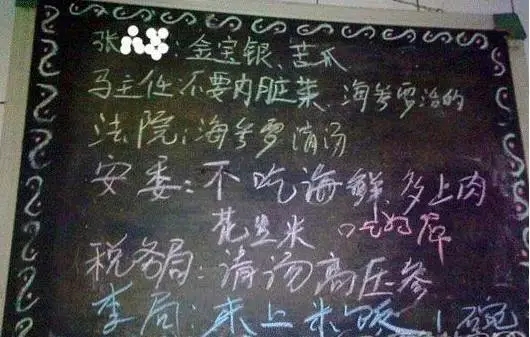 张：金宝银、苦瓜
马主任：不要内脏菜、海参要活的
法院：海参要清汤
安委：不吃海鲜、多上肉
花生米
税务局：清汤高压参
李局：来上米饭1碗